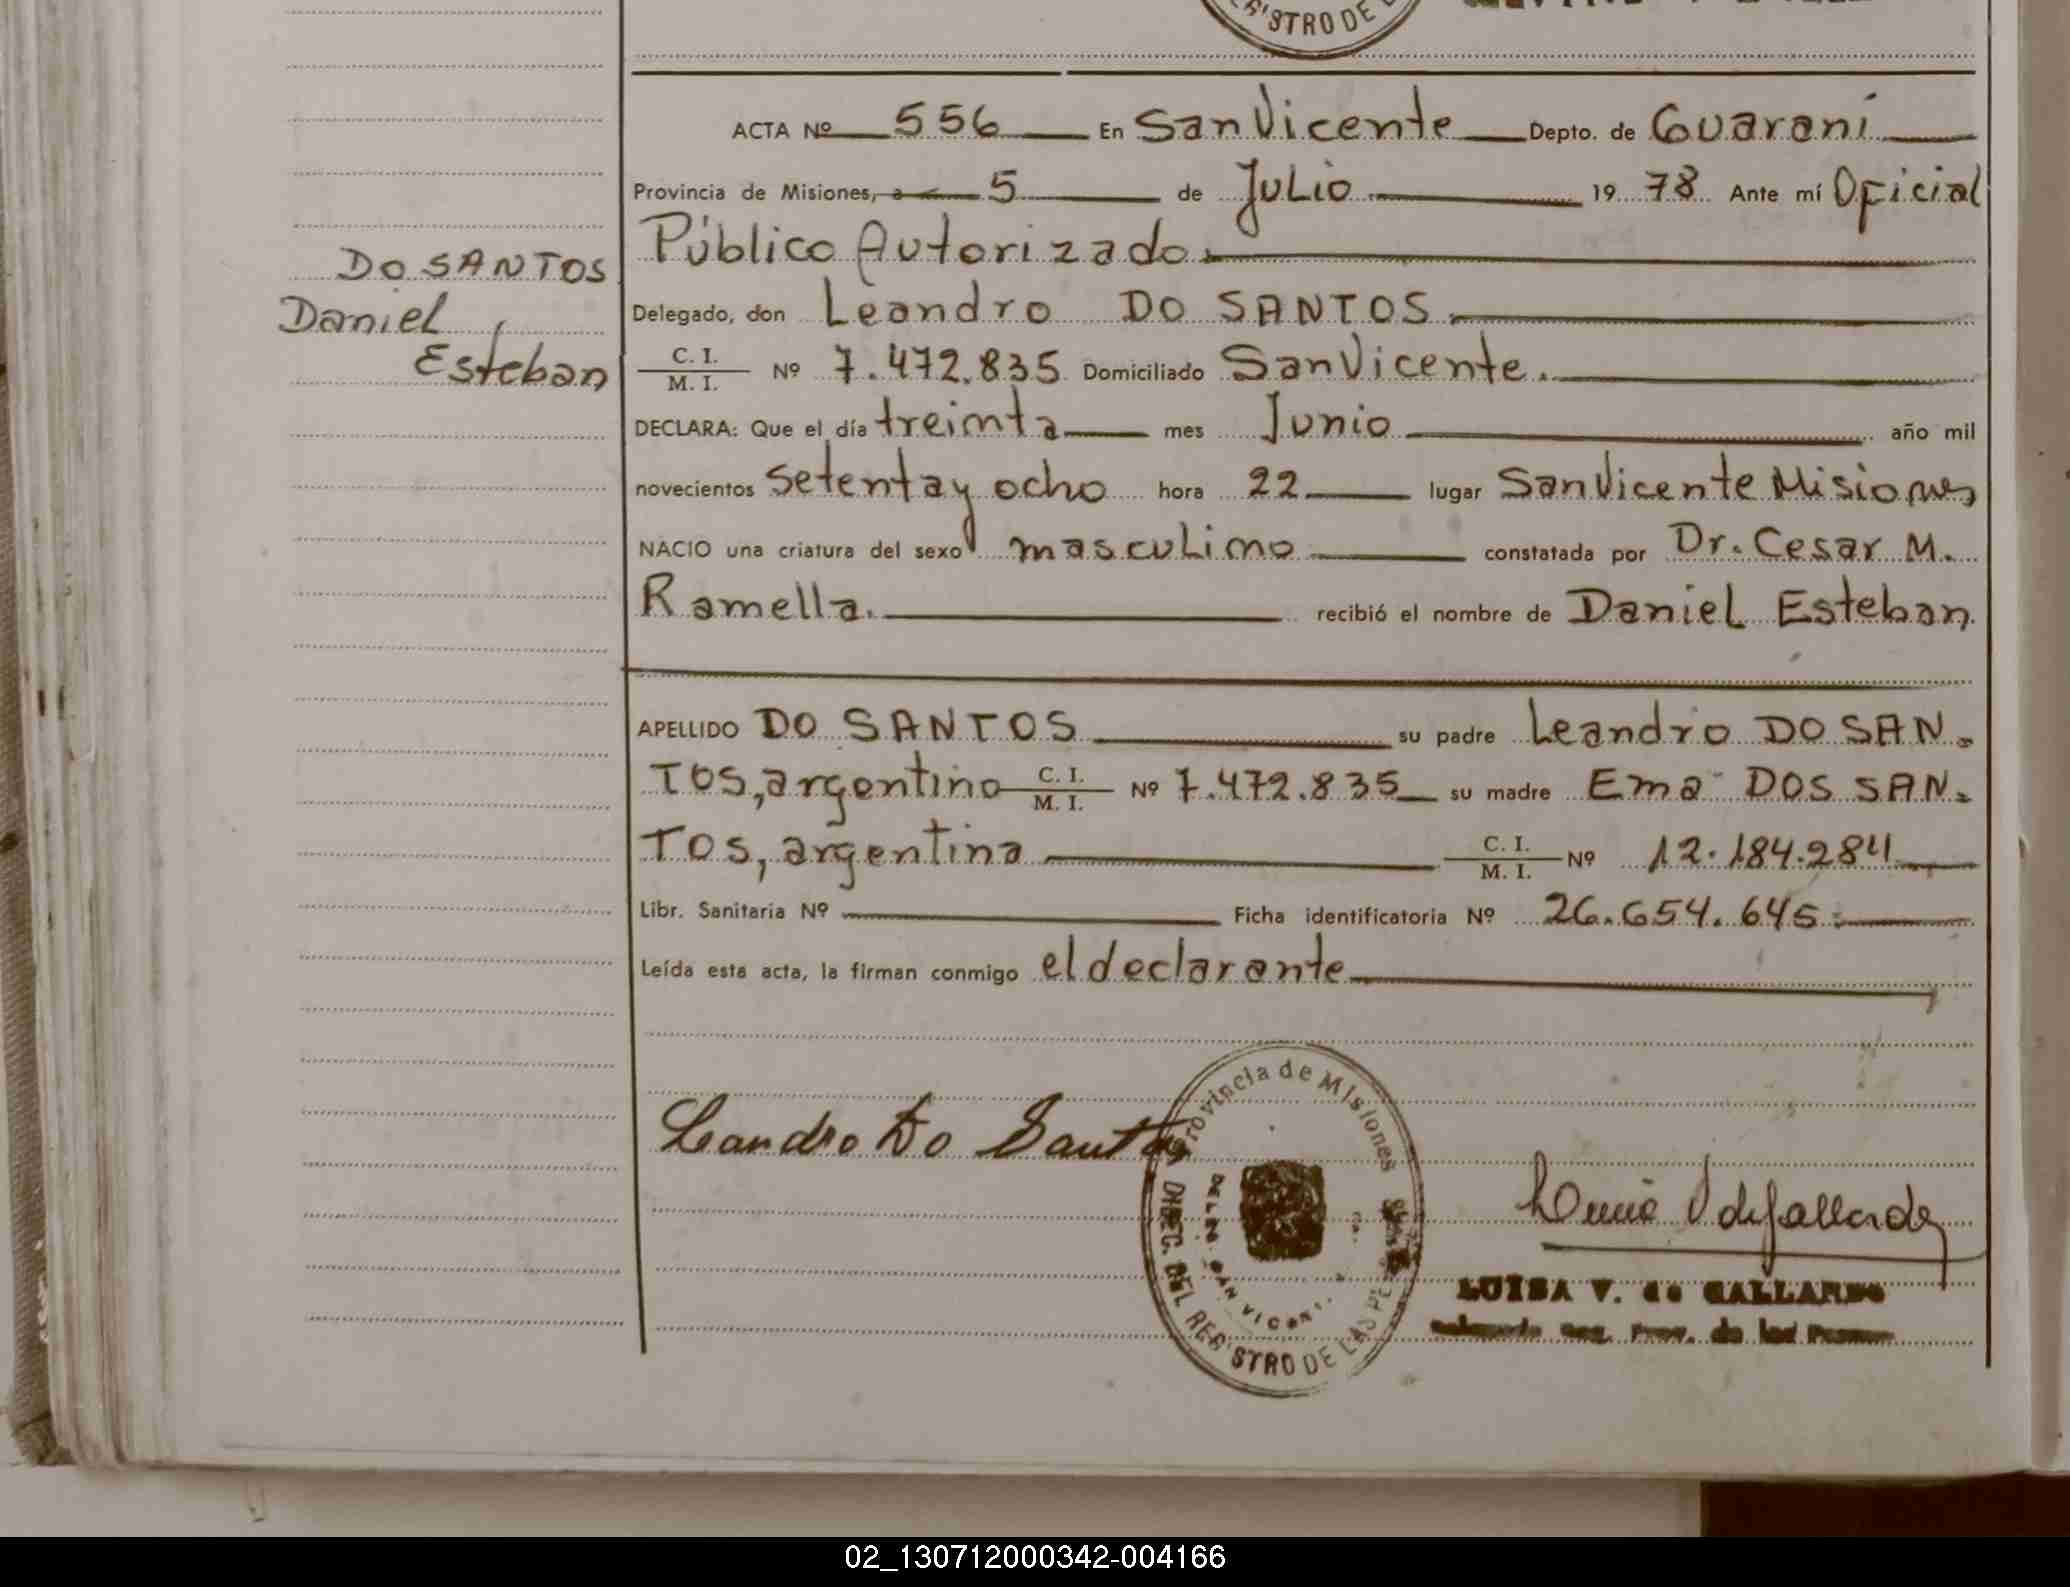 STRO DE
ACTA Nº 556 En San Vicente Depto. de Guaraní
Provincia de Misiones, a 5 de Julio 1978 Ante mí Oficial
Público Autorizado.
DO SANTOS
Daniel
Esteban
Delegado, don Leandro DO SANTOS.
C. I.
M. I. Nº 7.472.835 Domiciliado San Vicente.
DECLARA: Que el día treinta mes Junio año mil
novecientos setenta y ocho hora 22 lugar San Vicente Misiones
NACIO una criatura del sexo masculino constatada por Dr. Cesar M.
Ramella. recibió el nombre de Daniel Esteban
APELLIDO DO SANTOS su padre Leandro DO SAN-
TOS, argentino C. I.
M. I. Nº 7.472.835 su madre Ema DOS SAN-
TOS, argentina C. I.
M. I. Nº 12.184.284
Libr. Sanitaria Nº Ficha identificatoria Nº 26.654.645.
Leída esta acta, la firman conmigo el declarante
Leandro Do Santos
Provincia de Misiones
DIREC. DEL REGISTRO DE LAS PE
LUISA V. de GALLARDO
02_130712000342-004166